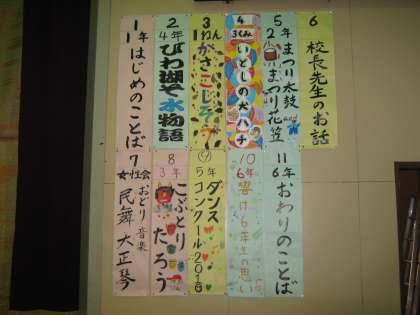 1
1年 はじめのことば
2
4年 びわ湖そ水物語
3
1ねん かさこじぞう
4
3くみ いとしの犬ハチ
5
5年 まつり太鼓
2年 まつり花笠
6
校長先生のお話
7
女性会 おどり 音楽
民舞 大正琴
8
3年 こぶとりたろう
9
5年 ダンス
コンクール2018
10
6年 響け6年生の思い
11
6年 おわりのことば